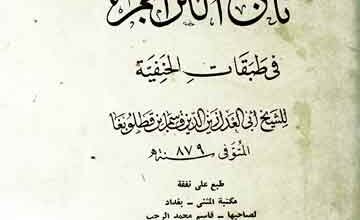 تاج التراجم
في طبقات الحنفية
للشيخ أبي العدل زين الدين قاسم بن قطلوبغا
المتوفى سنة ٨٧٩ هـ
طبع على نفقة
مكتبة المثنى - بغداد
لصاحبها - قاسم محمد الرجب